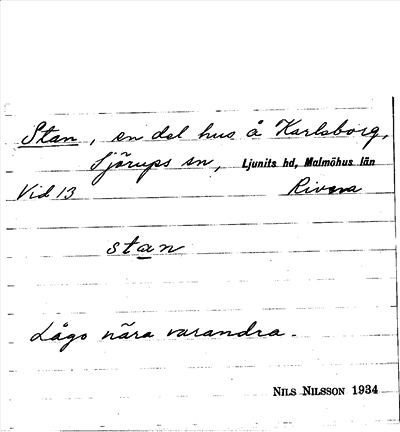 Stan, en del hus å Karlsborg,
Sjörups sn, Ljunits hd, Malmöhus län
Vid 13 Rivna
stan
Lågo nära varandra.
NILS NILSSON 1934